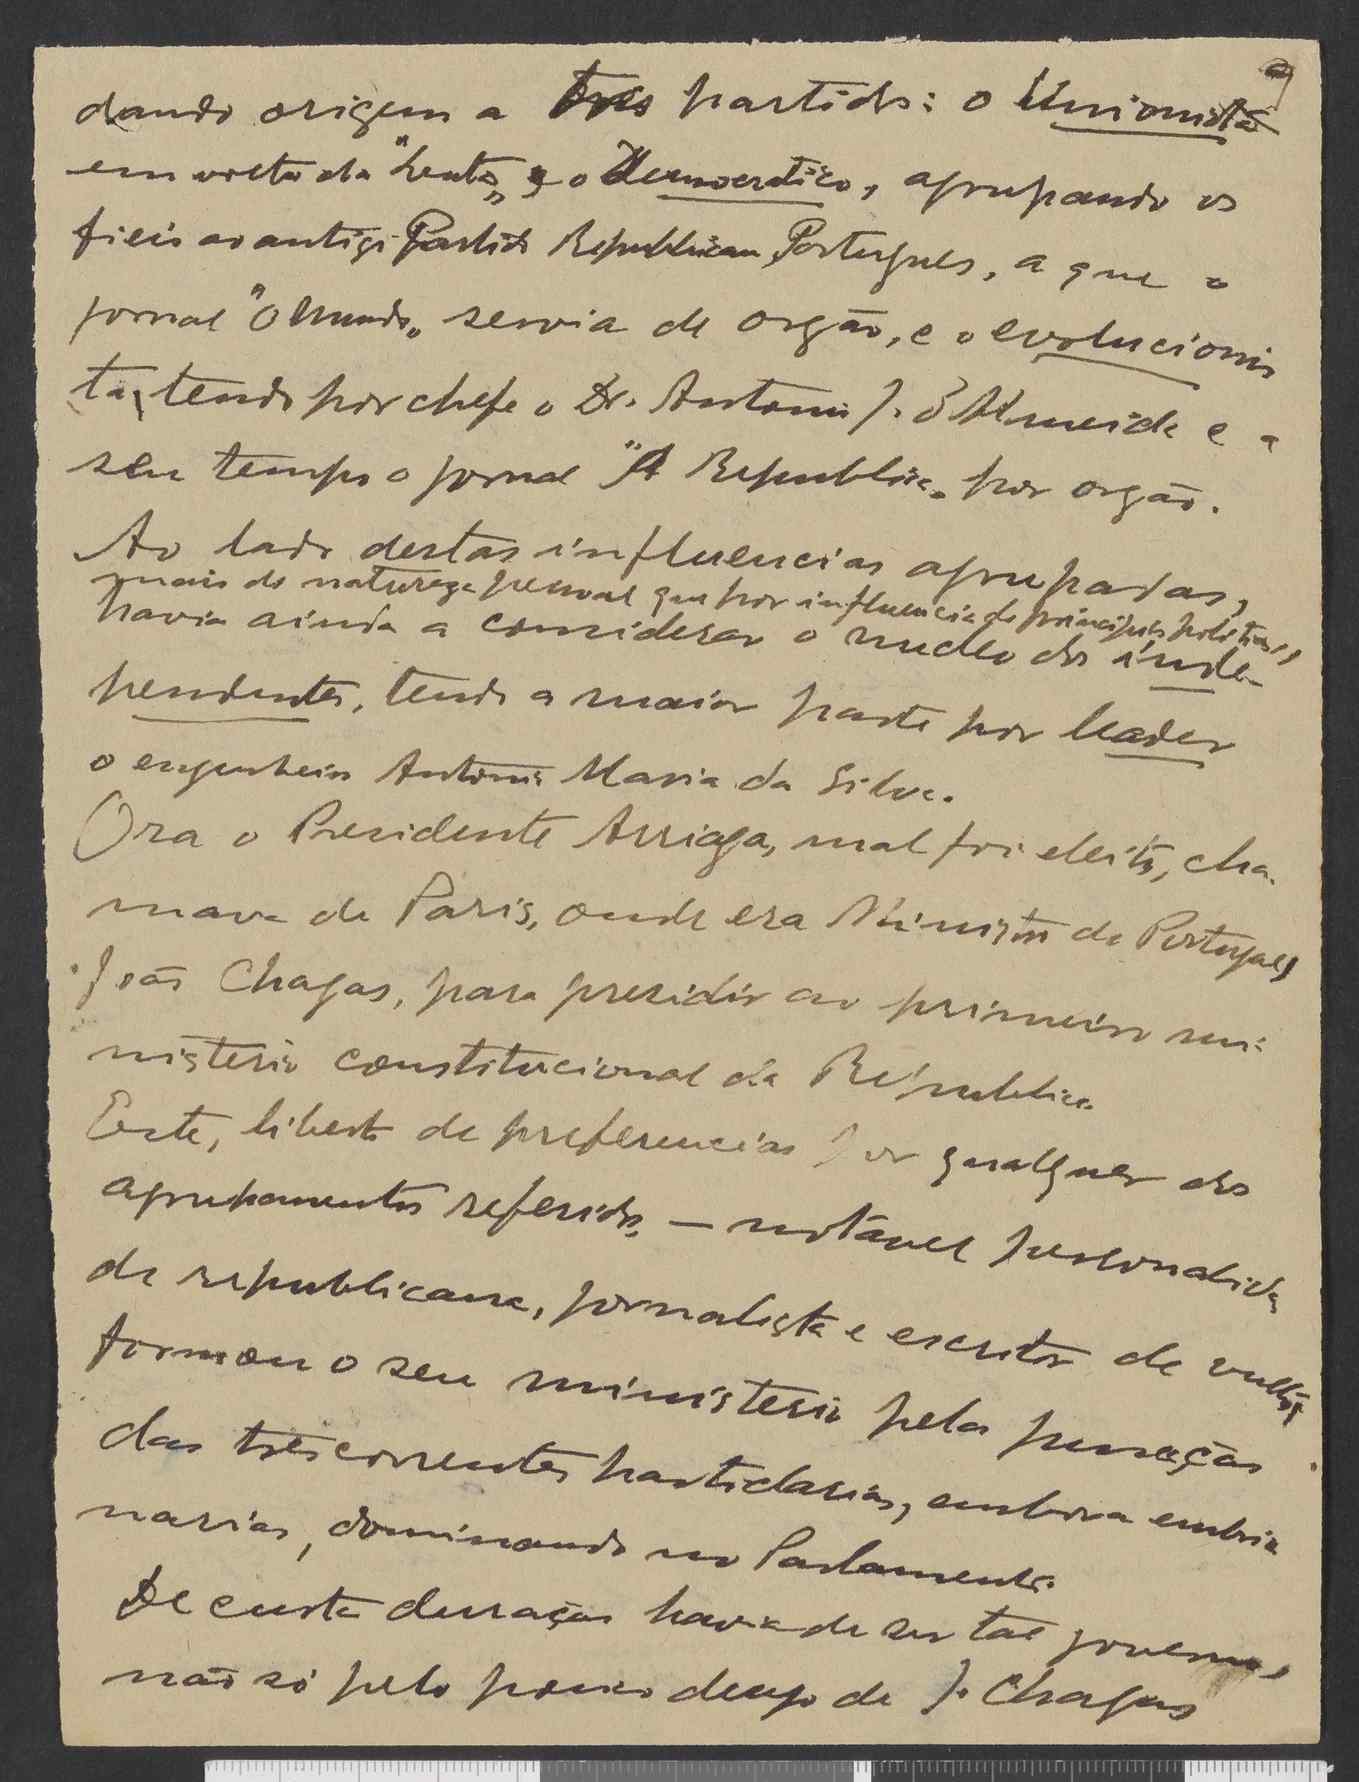 dando origem a tres partidos: o Unionista
em volta da "Lucta„ o Democratico, agrupando os
fieis ao antigo Partido Republicano Portugues, a que o
jornal "O Mundo„ servia de orgão, e o evolucionis
ta, tendo por chefe o Dr. Antonio J. d'Almeida e a
seu tempo o jornal "A Republica„ por orgão.
Ao lado destas influencias agrupadas,
mais de natureza pessoal que por influencia de principios politicos,
havia ainda a considerar o nucleo dos inde-
pendentes, tendo a maior parte por leader
o engenheiro Antonio Maria da Silva.
Ora o Presidente Arriaga, mal foi eleito, cha-
mava de Paris, onde era Ministro de Portugal,
João Chagas, para presidir ao primeiro mi-
nisterio constitucional da Republica.
Este, liberto de preferencias por qualquer dos
agrupamentos referidos, — notavel personalida
de republicana, jornalista e escritor de vulto,
formou o seu ministerio pela
das tres correntes partidarias, embora embrio
narias, dominando no Parlamento.
De curta duração havia de ser tal governo,
não só pelo pouco desejo de J. Chagas